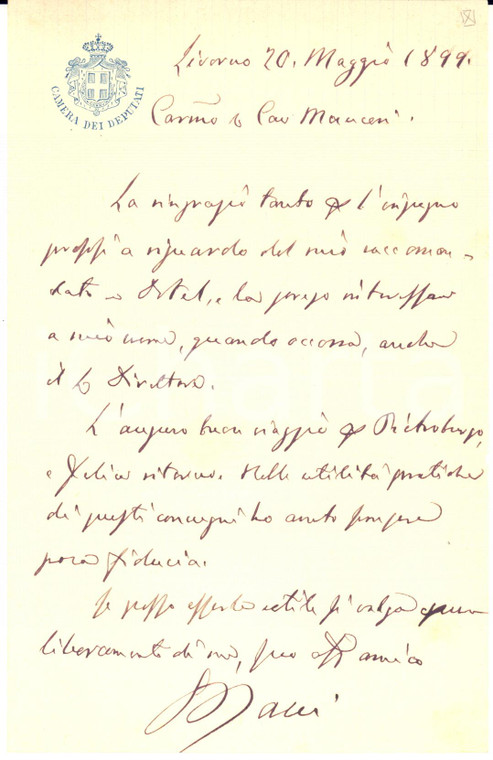 CAMERA DEI DEPUTATI
Livorno 20. Maggio 1899.
Carmo
La ringrazio tanto l'impegno
a riguardo del mio raccoman-
dato e la prego interessar
a mio nome, quando occorra, anche
il Direttore.
L'auguro buon viaggio Pietroburgo,
e felice ritorno. Nelle utilità pratiche
di questi convegni ho avuto sempre
poca fiducia.
Se posso esserle utile si valga pure
liberamente di me, suo aff amico